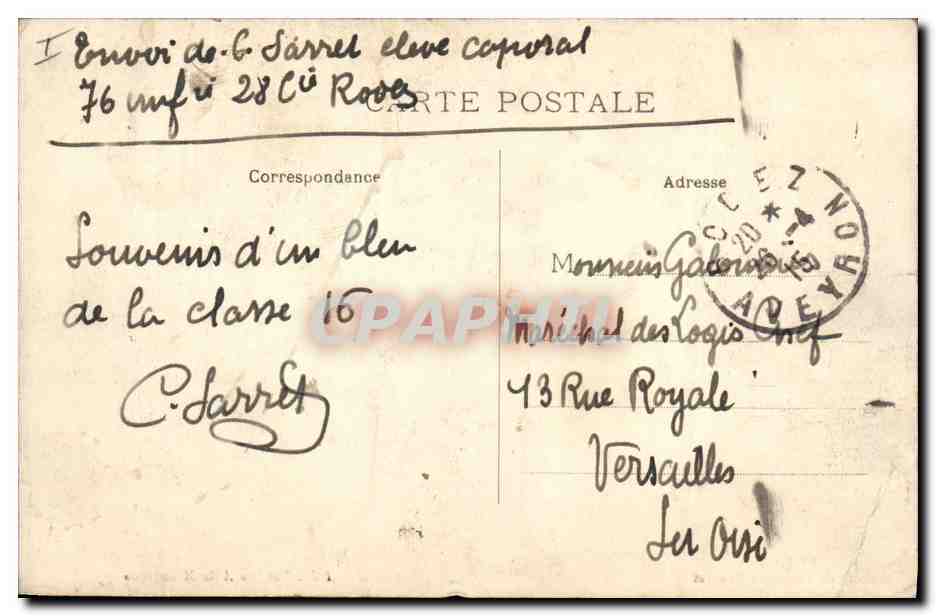 I Envoi de C. Sarret eleve caporal
76 infie 28 Cie Rodez
CARTE POSTALE
Correspondance
Adresse
Souvenis d'un bleu
de la classe 16
C. Sarret
RODEZ AVEYRON
20 *
26 - 4
15
Monsieur
Maréchal des Logis Chef
13 Rue Royale
Versailles
CPAPHIL